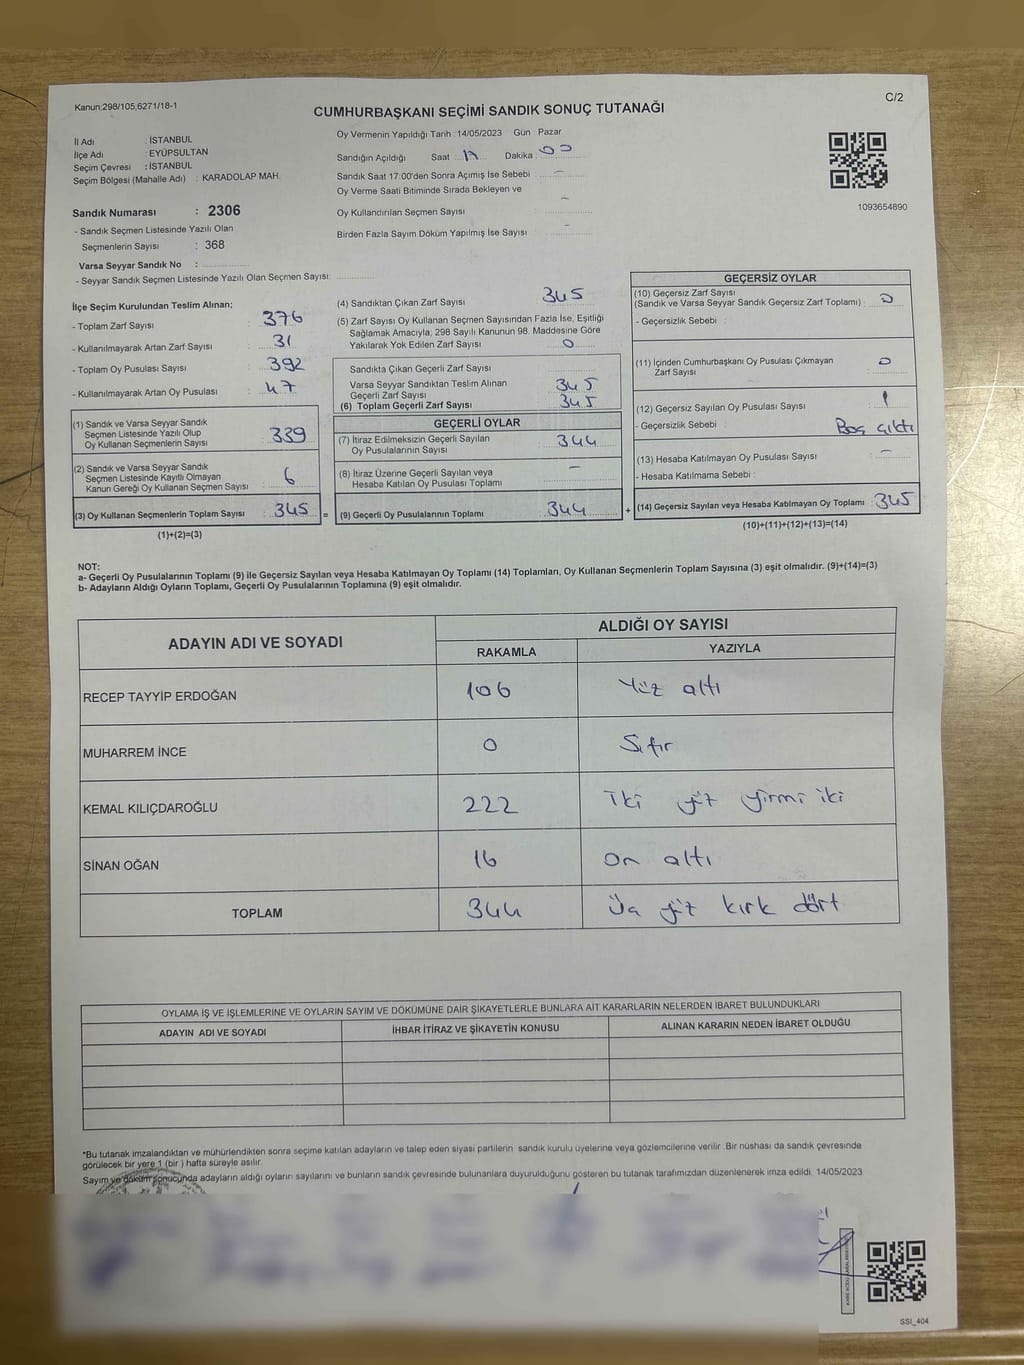 Kanun:298/105,6271/18-1
C/2
CUMHURBAŞKANI SEÇİMİ SANDIK SONUÇ TUTANAĞI
İl Adı : İSTANBUL
İlçe Adı : EYÜPSULTAN
Seçim Çevresi : İSTANBUL
Seçim Bölgesi (Mahalle Adı) : KARADOLAP MAH.
Oy Vermenin Yapıldığı Tarih : 14/05/2023 Gün Pazar
Sandığın Açıldığı Saat : 17 Dakika : 00
Sandık Saat 17:00'den Sonra Açımış İse Sebebi : –
Oy Verme Saati Bitiminde Sırada Bekleyen ve
Oy Kullandırılan Seçmen Sayısı : –
Birden Fazla Sayım Döküm Yapılmış İse Sayısı : –
1093654890
Sandık Numarası : 2306
- Sandık Seçmen Listesinde Yazılı Olan
Seçmenlerin Sayısı : 368
Varsa Seyyar Sandık No :
- Seyyar Sandık Seçmen Listesinde Yazılı Olan Seçmen Sayısı:
İlçe Seçim Kurulundan Teslim Alınan;
- Toplam Zarf Sayısı : 376
- Kullanılmayarak Artan Zarf Sayısı : 31
- Toplam Oy Pusulası Sayısı : 392
- Kullanılmayarak Artan Oy Pusulası : 47
(1) Sandık ve Varsa Seyyar Sandık
Seçmen Listesinde Yazılı Olup
Oy Kullanan Seçmenlerin Sayısı : 339
(2) Sandık ve Varsa Seyyar Sandık
Seçmen Listesinde Kayıtlı Olmayan
Kanun Gereği Oy Kullanan Seçmen Sayısı : 6
(3) Oy Kullanan Seçmenlerin Toplam Sayısı : 345 =
(1)+(2)=(3)
(4) Sandıktan Çıkan Zarf Sayısı : 345
(5) Zarf Sayısı Oy Kullanan Seçmen Sayısından Fazla İse, Eşitliği
Sağlamak Amacıyla; 298 Sayılı Kanunun 98. Maddesine Göre
Yakılarak Yok Edilen Zarf Sayısı : 0
Sandıkta Çıkan Geçerli Zarf Sayısı :
Varsa Seyyar Sandıktan Teslim Alınan
Geçerli Zarf Sayısı : 345
(6) Toplam Geçerli Zarf Sayısı : 345
GEÇERLİ OYLAR
(7) İtiraz Edilmeksizin Geçerli Sayılan
Oy Pusulalarının Sayısı : 344
(8) İtiraz Üzerine Geçerli Sayılan veya
Hesaba Katılan Oy Pusulası Toplamı : –
(9) Geçerli Oy Pusulalarının Toplamı : 344 +
GEÇERSİZ OYLAR
(10) Geçersiz Zarf Sayısı
(Sandık ve Varsa Seyyar Sandık Geçersiz Zarf Toplamı) : 0
- Geçersizlik Sebebi :
(11) İçinden Cumhurbaşkanı Oy Pusulası Çıkmayan
Zarf Sayısı : 0
(12) Geçersiz Sayılan Oy Pusulası Sayısı : 1
- Geçersizlik Sebebi : Boş çıktı
(13) Hesaba Katılmayan Oy Pusulası Sayısı : –
- Hesaba Katılmama Sebebi :
(14) Geçersiz Sayılan veya Hesaba Katılmayan Oy Toplamı : 345
(10)+(11)+(12)+(13)=(14)
NOT:
a- Geçerli Oy Pusulalarının Toplamı (9) ile Geçersiz Sayılan veya Hesaba Katılmayan Oy Toplamı (14) Toplamları, Oy Kullanan Seçmenlerin Toplam Sayısına (3) eşit olmalıdır. (9)+(14)=(3)
b- Adayların Aldığı Oyların Toplamı, Geçerli Oy Pusulalarının Toplamına (9) eşit olmalıdır.
ADAYIN ADI VE SOYADI
ALDIĞI OY SAYISI
RAKAMLA YAZIYLA
RECEP TAYYİP ERDOĞAN 106 Yüz altı
MUHARREM İNCE 0 Sıfır
KEMAL KILIÇDAROĞLU 222 iki yüz yirmi iki
SİNAN OĞAN 16 On altı
TOPLAM 344 Üç yüz kırk dört
OYLAMA İŞ VE İŞLEMLERİNE VE OYLARIN SAYIM VE DÖKÜMÜNE DAİR ŞİKAYETLERLE BUNLARA AİT KARARLARIN NELERDEN İBARET BULUNDUKLARI
ADAYIN ADI VE SOYADI İHBAR İTİRAZ VE ŞİKAYETİN KONUSU ALINAN KARARIN NEDEN İBARET OLDUĞU
*Bu tutanak imzalandıktan ve mühürlendikten sonra seçime katılan adayların ve talep eden siyasi partilerin sandık kurulu üyelerine veya gözlemcilerine verilir. Bir nüshası da sandık çevresinde
görülecek bir yere 1 (bir ) hafta süreyle asılır.
Sayım ve döküm sonucunda adayların aldığı oyların sayılarını ve bunların sandık çevresinde bulunanlara duyurulduğunu gösteren bu tutanak tarafımızdan düzenlenerek imza edildi. 14/05/2023
SSI_404